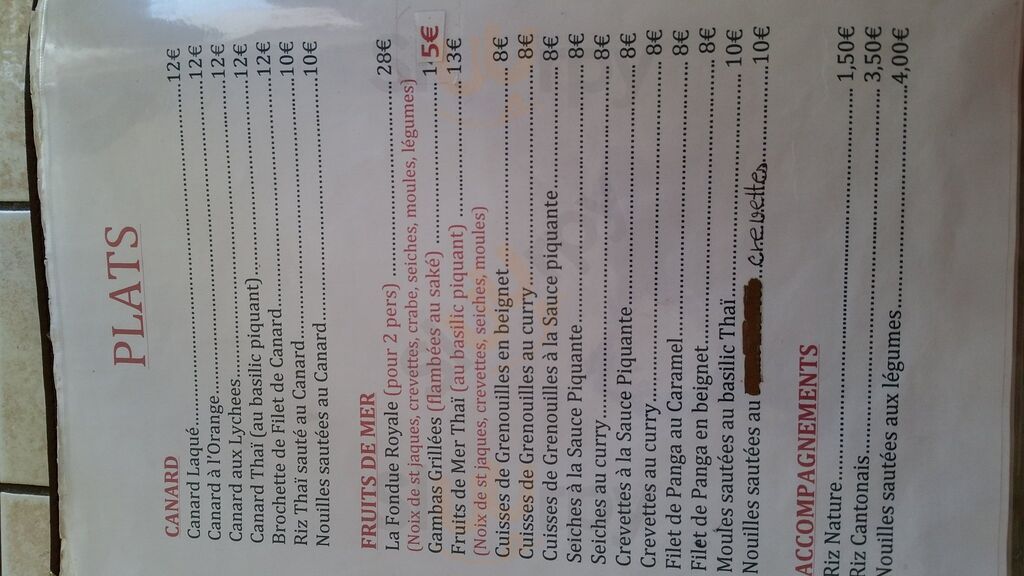 PLATS
CANARD
Canard Laqué 12€
Canard à l'Orange 12€
Canard aux Lychees 12€
Canard Thaï (au basilic piquant) 12€
Brochette de Filet de Canard 12€
Riz Thaï sauté au Canard 10€
Nouilles sautées au Canard 10€
FRUITS DE MER
La Fondue Royale (pour 2 pers) 28€
(Noix de st jaques, crevettes, crabe, seiches, moules, légumes)
Gambas Grillées (flambées au saké) 15€
Fruits de Mer Thaï (au basilic piquant) 13€
(Noix de st jaques, crevettes, seiches, moules)
Cuisses de Grenouilles en beignet 8€
Cuisses de Grenouilles au curry 8€
Cuisses de Grenouilles à la Sauce piquante 8€
Seiches à la Sauce Piquante 8€
Seiches au curry 8€
Crevettes à la Sauce Piquante 8€
Crevettes au curry 8€
Filet de Panga au Caramel 8€
Filet de Panga en beignet 8€
Moules sautées au basilic Thaï 10€
Nouilles sautées au crevettes 10€
ACCOMPAGNEMENTS
Riz Nature 1,50€
Riz Cantonais 3,50€
Nouilles sautées aux légumes 4,00€